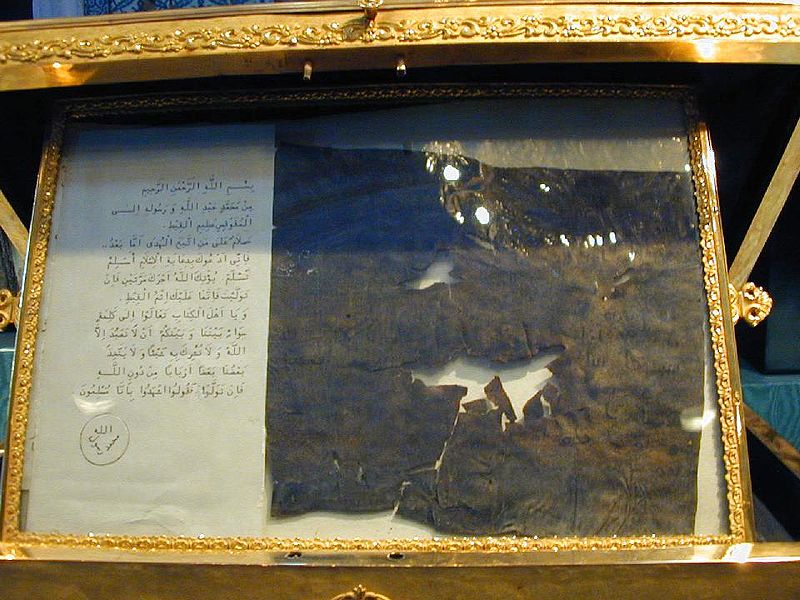 بِسْمِ اللَّهِ الرَّحْمَنِ الرَّحِيمِ
مِنْ مُحَمَّدٍ عَبْدِ اللَّهِ وَرَسُولِهِ إِلَى
الْمُقَوْقِسِ عَظِيمِ الْقِبْطِ.
سَلَامٌ عَلَى مَنِ اتَّبَعَ الْهُدَى أَمَّا بَعْدُ..
فَإِنِّي أَدْعُوكَ بِدِعَايَةِ الْإِسْلَامِ أَسْلِمْ
تَسْلَمْ يُؤْتِكَ اللَّهُ أَجْرَكَ مَرَّتَيْنِ فَإِنْ
تَوَلَّيْتَ فَإِنَّمَا عَلَيْكَ إِثْمُ الْقِبْطِ.
وَيَا أَهْلَ الْكِتَابِ تَعَالَوْا إِلَى كَلِمَةٍ
سَوَاءٍ بَيْنَنَا وَبَيْنَكُمْ أَنْ لَا نَعْبُدَ إِلَّا
اللَّهَ وَلَا نُشْرِكَ بِهِ شَيْئًا وَلَا يَتَّخِذَ
بَعْضُنَا بَعْضًا أَرْبَابًا مِنْ دُونِ اللَّهِ
فَإِنْ تَوَلَّوْا فَقُولُوا اشْهَدُوا بِأَنَّا مُسْلِمُونَ
الله
رسول
محمد